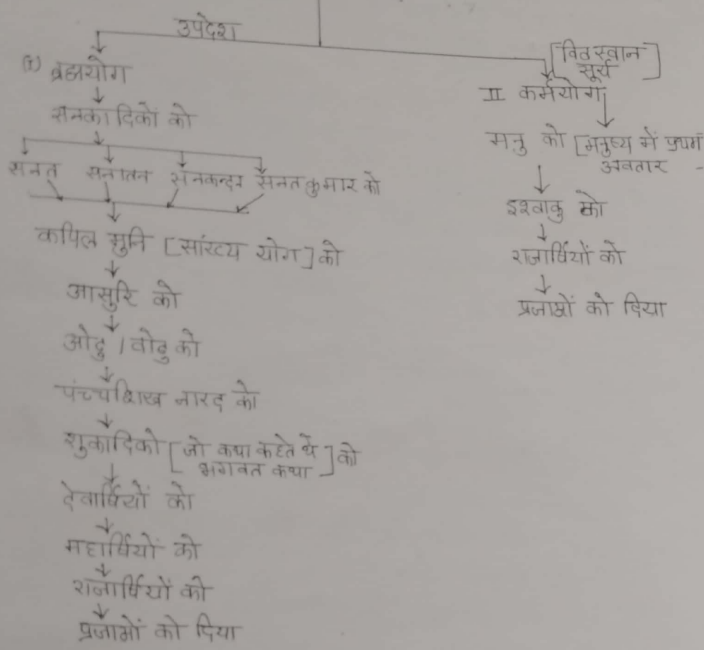 उपदेश
(I) ब्रह्मयोग
सनकादिकों को
सनत सनातन सनकन्दन सनतकुमार को
कपिल मुनि [सांख्य योग] को
आसुरि को
ओढु / वोढु को
पंच्चशिख नारद को
शुकादिको [जो कथा कहते थे भगवत कथा] को
देवार्षियों को
महार्षियों को
राजार्षियों को
प्रजाओं को दिया
[विवस्वान सूर्य]
II कर्मयोग
मनु को [मनुष्य में प्रथम अवतार
इश्वाकु को
राजार्षियों को
प्रजाओं को दिया